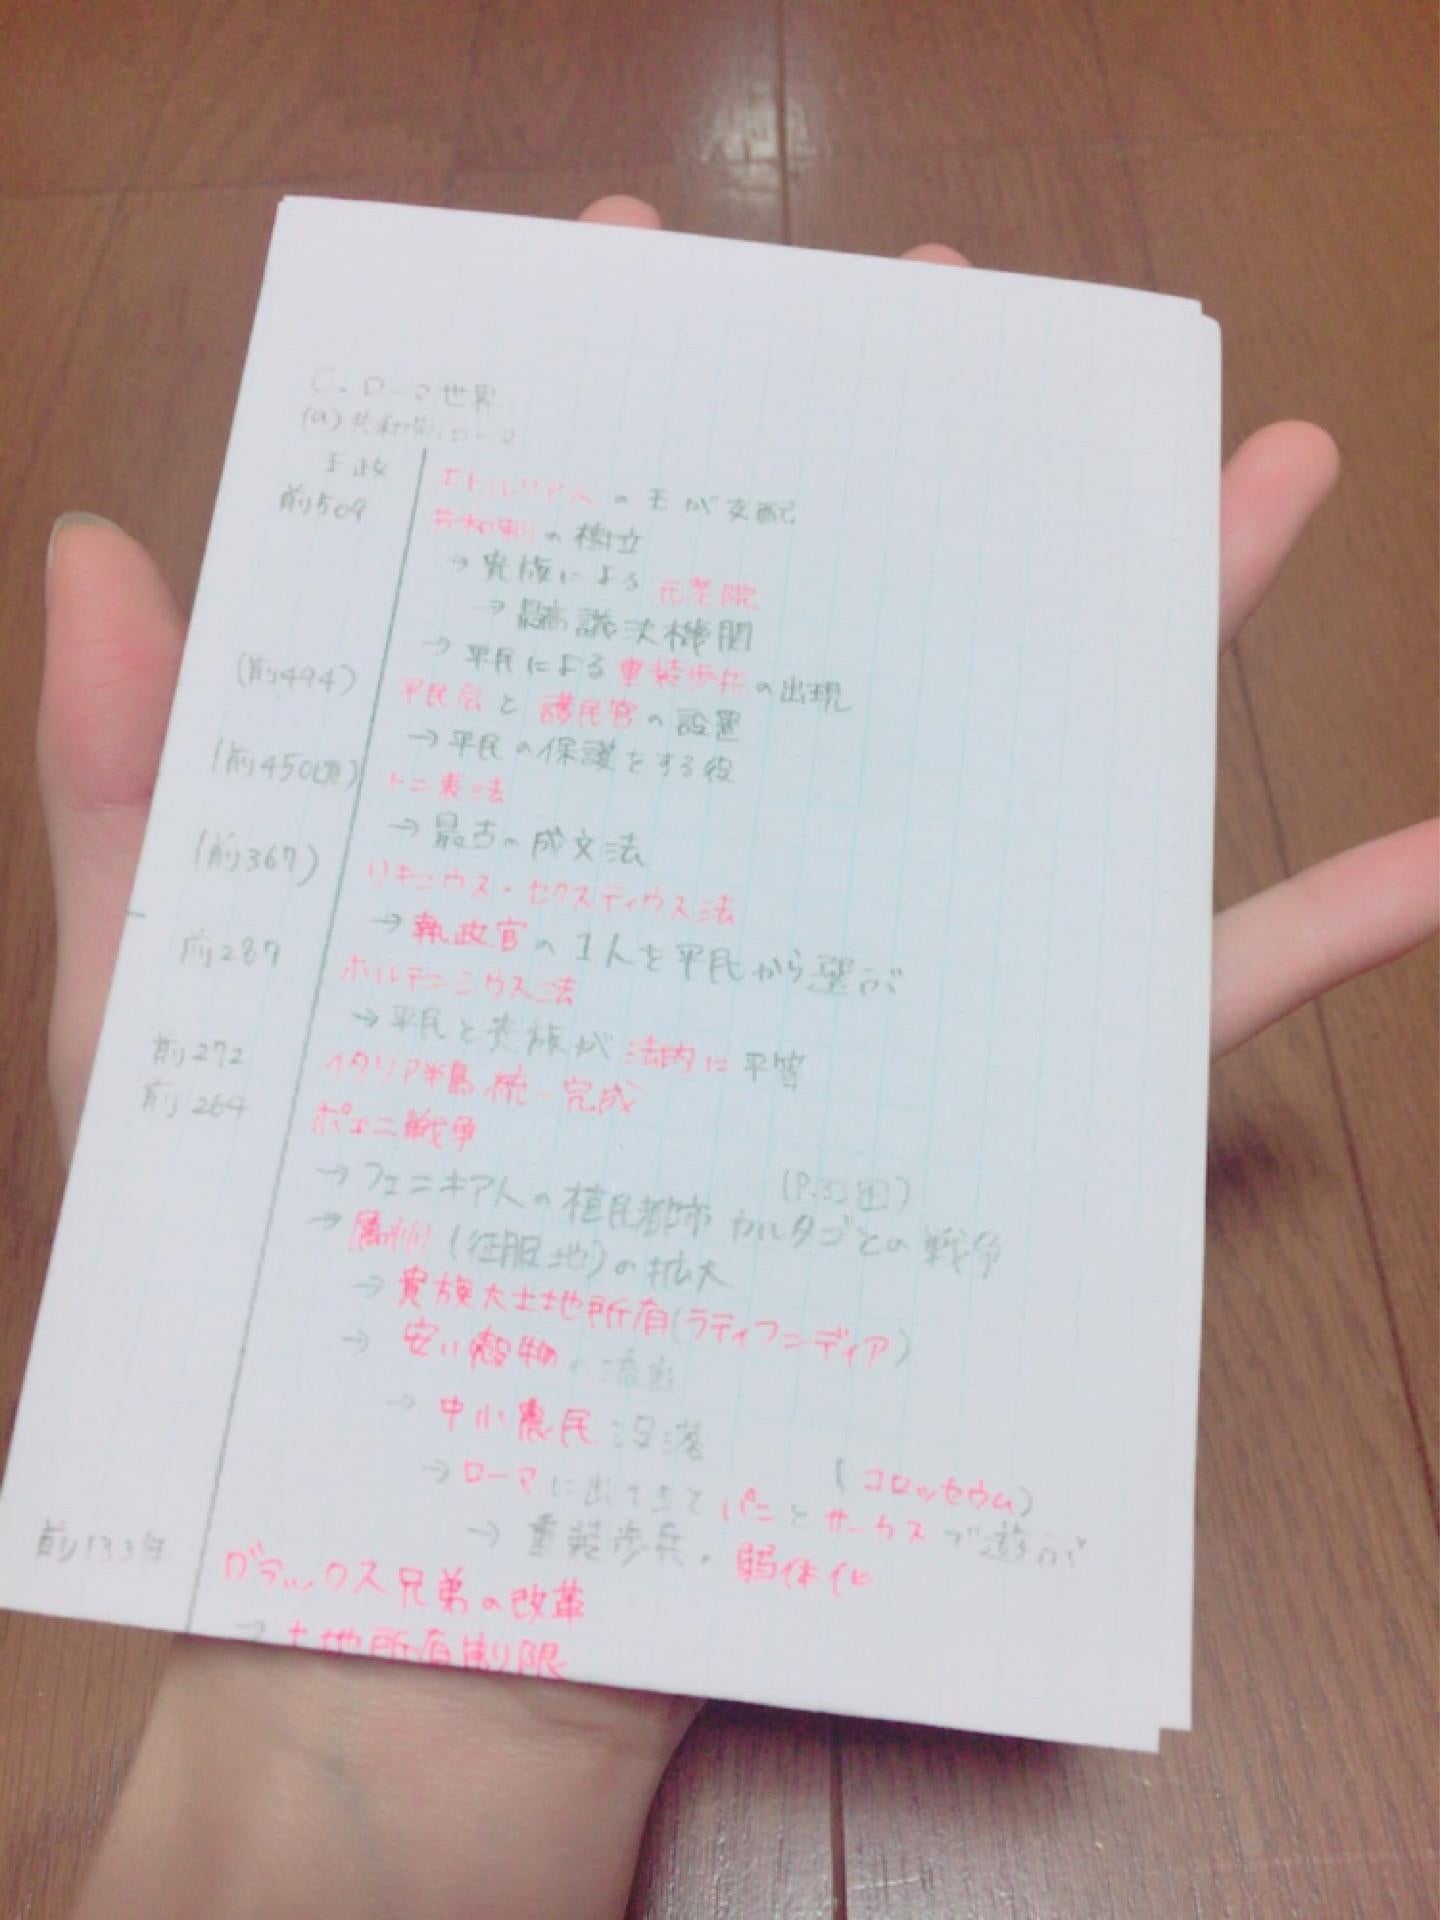 C. ローマ世界
(a) 共和制ローマ
王政 エトルリア人の王が支配
前509 共和制の樹立
→ 貴族による元老院
→ 最高議決機関
→ 平民による重装歩兵の出現
(前494) 平民会と護民官の設置
→ 平民の保護をする役
(前450頃) 十二表法
→ 最古の成文法
(前367) リキニウス・セクスティウス法
→ 執政官の1人を平民から選ぶ
前287 ホルテンシウス法
→ 平民と貴族が法的に平等
前272 イタリア半島統一完成
前264 ポエニ戦争
(P.33 図)
→ フェニキア人の植民都市カルタゴとの戦争
→ 属州(征服地)の拡大
→ 貴族大土地所有(ラティフンディア)
→ 安い穀物の
→ 中小農民没落
(コロッセウム)
→ ローマに出てきてパンとサーカスで遊ぶ
→ 重装歩兵の弱体化
前133年 グラックス兄弟の改革
→ 土地所有制限